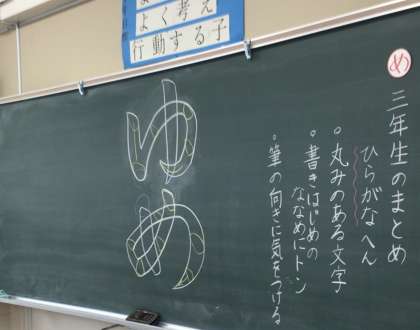 よく考え
行動する子
め 三年生のまとめ
ひらがなへん
・丸みのある文字
・書きはじめの
ななめにトン
・筆の向きに気をつける
ゆめ